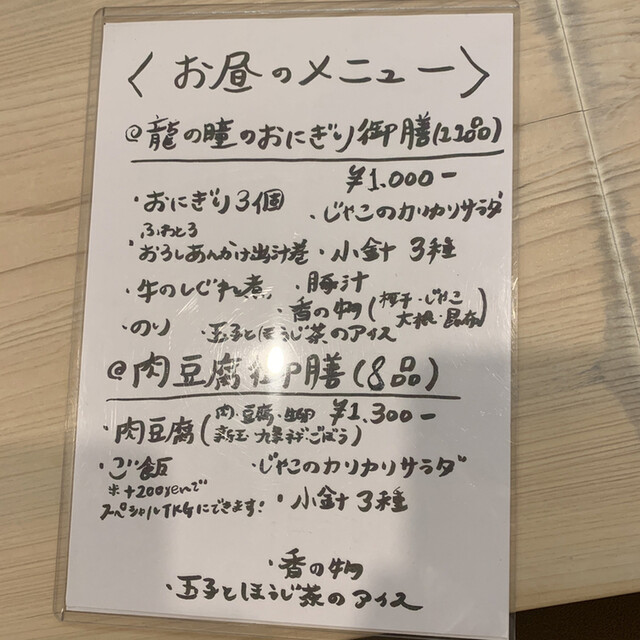 〈お昼のメニュー〉
@龍の瞳のおにぎり御膳(12品)
¥1.000-
・おにぎり3個 ・じゃこのカリカリサラダ
ふわとろ
・おろしあんかけ出汁巻 ・小針 3種
・牛のしぐれ煮 ・豚汁
・香の物(梅干・じゃこ
大根・昆布)
・のり ・玉子とほうじ茶のアイス
@肉豆腐御膳(8品)
¥1.300-
・肉豆腐(肉・豆腐・生卵
新玉・九条ネギ・ごぼう)
・ご飯 ・じゃこのカリカリサラダ
※+200yenで
スペシャルTKGにできます! ・小針 3種
・香の物
・玉子とほうじ茶のアイス